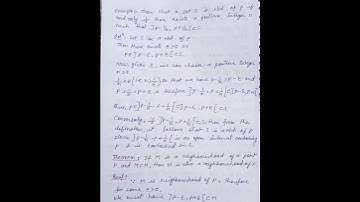 Example Show that a set S is nbd of P if
and only if there exists a positive integer n
such that ]P-1/n, P+1/n[ ⊂ S.
Solⁿ. Let S be a nbd of P
Then there exist ε>0 s.t.
P∈]P-ε, P+ε[⊂S
Now, given ε, we can choose a positive integer
n s.t.
1/n<ε so that we have P-1/n>P-ε and
P+1/n<P+ε therefore ]P-1/n, P+1/n[⊂]P-ε, P+ε[
Thus P∈]P-1/n, P+1/n[⊂]P-ε, P+ε[⊂S
Conversely, if ]P-1/n, P+1/n[⊂S then from the
definition, it follows that S is a nbd of P
since ]P-1/n, P+1/n[ is an open interval containing
P & is contained in S.
Theorem: If M is a neighbourhood of a point
P and M⊂N, then N is also a neighbourhood of P
Proof:
∵ M is neighbourhood of P, therefore
for some ε>0.
We must have ]P-ε, P+ε[⊂M